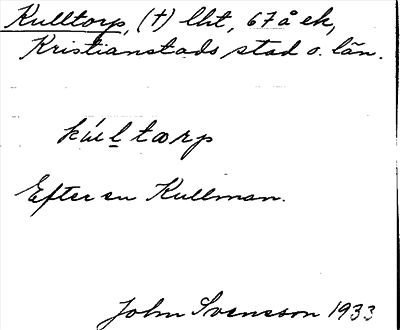 Kulltorp, (†) lht, 67 å ek,
Kristianstads stad o. län.
kúl̲ tørp
Efter en Kullman.
John Svensson 1933